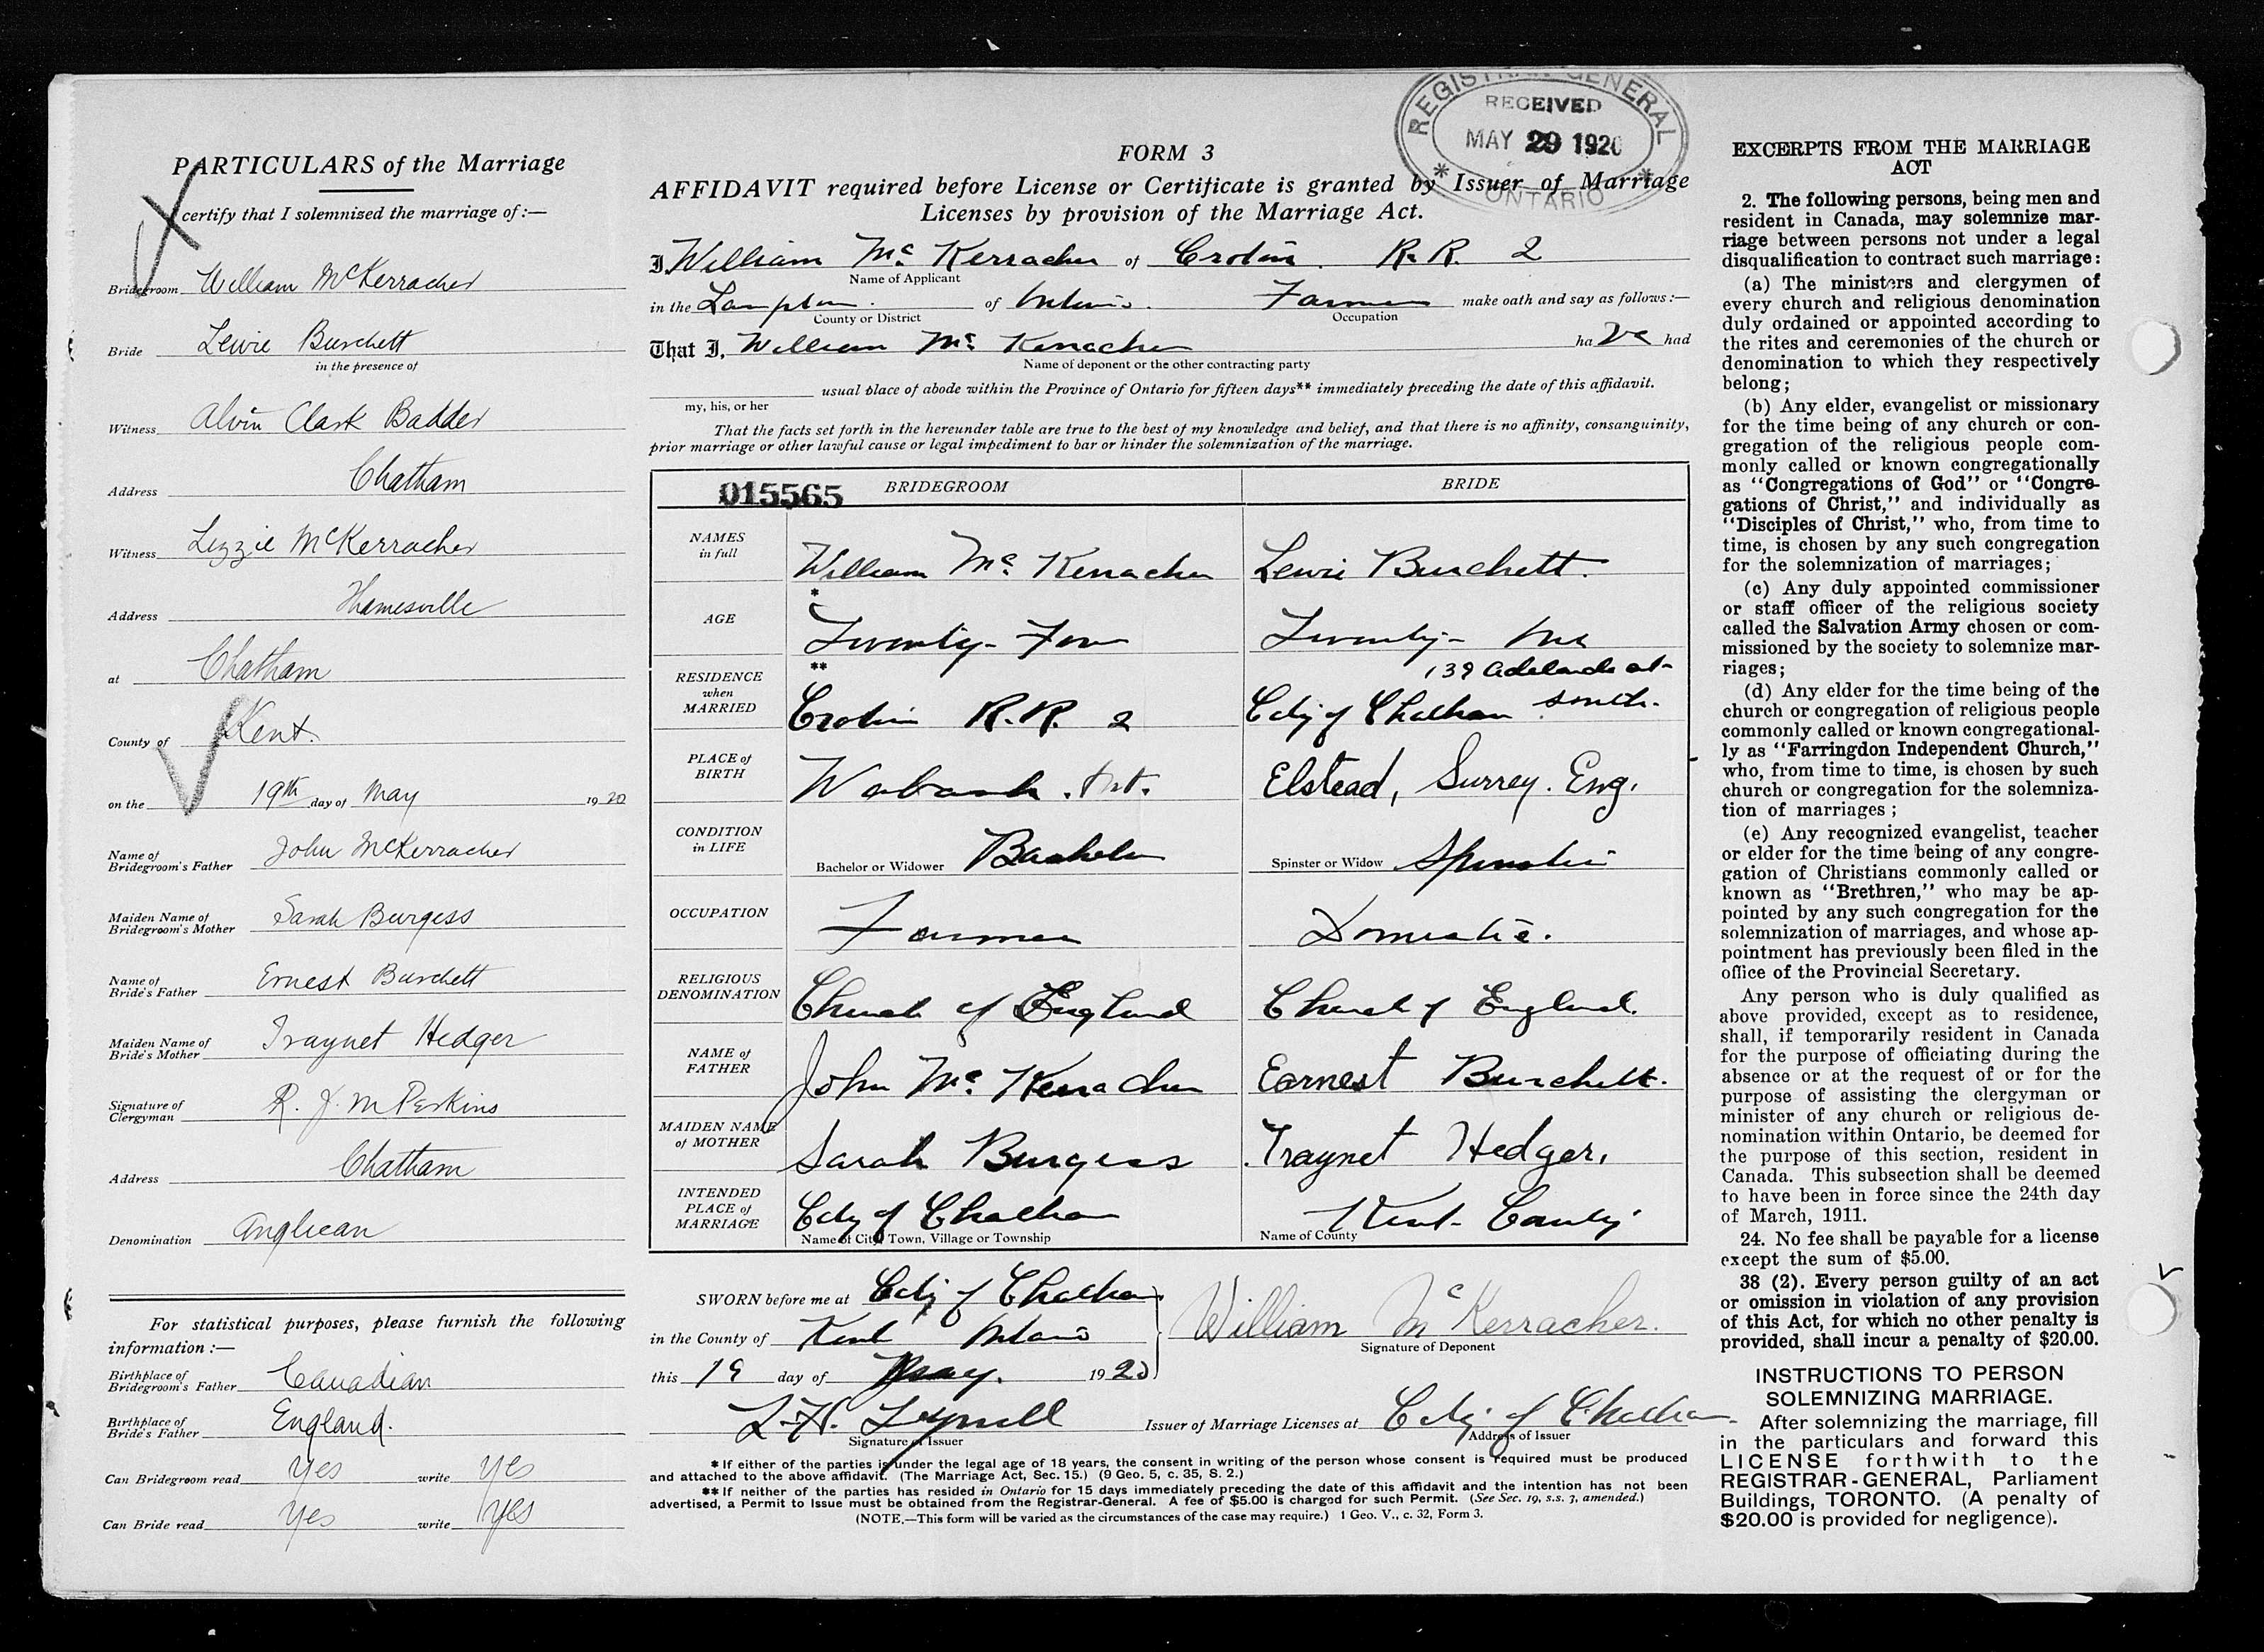 PARTICULARS of the Marriage
certify that I solemnized the marriage of :—
Bridegroom William McKerracher
Bride Lewie Burchett
in the presence of
Witness Alvin Clark Badder
Address Chatham
Witness Lizzie McKerracher
Address Thamesville
at Chatham
County of Kent.
on the 19th day of May 1920
Name of
Bridegroom's Father John McKerracher
Maiden Name of
Bridegroom's Mother Sarah Burgess
Name of
Bride's Father Ernest Burchett
Maiden Name of
Bride's Mother Traynet Hedger
Signature of
Clergyman R. J. M Perkins
Address Chatham
Denomination Anglican
For statistical purposes, please furnish the following
information :—
Birthplace of
Bridegroom's Father Canadian
Birthplace of
Bride's Father England.
Can Bridegroom read yes write yes
Can Bride read yes write yes
REGISTRAR GENERAL
RECEIVED
MAY 29 1920
ONTARIO
FORM 3
AFFIDAVIT required before License or Certificate is granted by Issuer of Marriage
Licenses by provision of the Marriage Act.
I, William Mc Kerracher of Croton R.R. 2
Name of Applicant
in the Lampton of Ontario. Farmer make oath and say as follows :—
County or District Occupation
That I, William Mc Kerracher ha ve had
Name of deponent or the other contracting party
usual place of abode within the Province of Ontario for fifteen days** immediately preceding the date of this affidavit.
my, his, or her
That the facts set forth in the hereunder table are true to the best of my knowledge and belief, and that there is no affinity, consanguinity,
prior marriage or other lawful cause or legal impediment to bar or hinder the solemnization of the marriage.
015565 BRIDEGROOM BRIDE
NAMES
in full
William Mc Kerracher Lewie Burchett.
*
AGE
Twenty-Four Twenty-
**
RESIDENCE
when
MARRIED
Croton R.R. 2 City of Chatham 139 Adelaide st- South.
PLACE of
BIRTH
Wabash. Ont. Elstead, Surrey. Eng.
CONDITION
in LIFE
Bachelor or Widower Bachelor Spinster or Widow Spinster
OCCUPATION
Farmer Domestic.
RELIGIOUS
DENOMINATION
Church of England Church of England.
NAME of
FATHER
John Mc Kerracher Earnest Burchett.
MAIDEN NAME
of MOTHER
Sarah Burgess Traynet Hedger,
INTENDED
PLACE of
MARRIAGE
City of Chatham Kent County
Name of City, Town, Village or Township Name of County
SWORN before me at City of Chatham
in the County of Kent Ontario
William McKerracher.
Signature of Deponent
this 19 day of May. 1920
L. H. Issuer of Marriage Licenses at City of Chatham
Signature of Issuer Address of Issuer
* If either of the parties is under the legal age of 18 years, the consent in writing of the person whose consent is required must be produced
and attached to the above affidavit. (The Marriage Act, Sec. 15.) (9 Geo. 5, c. 35, S. 2.)
** If neither of the parties has resided in Ontario for 15 days immediately preceding the date of this affidavit and the intention has not been
advertised, a Permit to Issue must be obtained from the Registrar-General. A fee of $5.00 is charged for such Permit. (See Sec. 19, s.s. 3, amended.)
(NOTE.—This form will be varied as the circumstances of the case may require.) 1 Geo. V., c. 32, Form 3.
EXCERPTS FROM THE MARRIAGE
ACT
2. The following persons, being men and
resident in Canada, may solemnize mar-
riage between persons not under a legal
disqualification to contract such marriage :
(a) The ministers and clergymen of
every church and religious denomination
duly ordained or appointed according to
the rites and ceremonies of the church or
denomination to which they respectively
belong;
(b) Any elder, evangelist or missionary
for the time being of any church or con-
gregation of the religious people com-
monly called or known congregationally
as "Congregations of God" or "Congre-
gations of Christ," and individually as
"Disciples of Christ," who, from time to
time, is chosen by any such congregation
for the solemnization of marriages;
(c) Any duly appointed commissioner
or staff officer of the religious society
called the Salvation Army chosen or com-
missioned by the society to solemnize mar-
riages;
(d) Any elder for the time being of the
church or congregation of religious people
commonly called or known congregational-
ly as "Farringdon Independent Church,"
who, from time to time, is chosen by such
church or congregation for the solemniza-
tion of marriages ;
(e) Any recognized evangelist, teacher
or elder for the time being of any congre-
gation of Christians commonly called or
known as "Brethren," who may be ap-
pointed by any such congregation for the
solemnization of marriages, and whose ap-
pointment has previously been filed in the
office of the Provincial Secretary.
Any person who is duly qualified as
above provided, except as to residence,
shall, if temporarily resident in Canada
for the purpose of officiating during the
absence or at the request of or for the
purpose of assisting the clergyman or
minister of any church or religious de-
nomination within Ontario, be deemed for
the purpose of this section, resident in
Canada. This subsection shall be deemed
to have been in force since the 24th day
of March, 1911.
24. No fee shall be payable for a license
except the sum of $5.00.
38 (2). Every person guilty of an act
or omission in violation of any provision
of this Act, for which no other penalty is
provided, shall incur a penalty of $20.00.
INSTRUCTIONS TO PERSON
SOLEMNIZING MARRIAGE.
After solemnizing the marriage, fill
in the particulars and forward this
LICENSE forthwith to the
REGISTRAR-GENERAL, Parliament
Buildings, TORONTO. (A penalty of
$20.00 is provided for negligence).